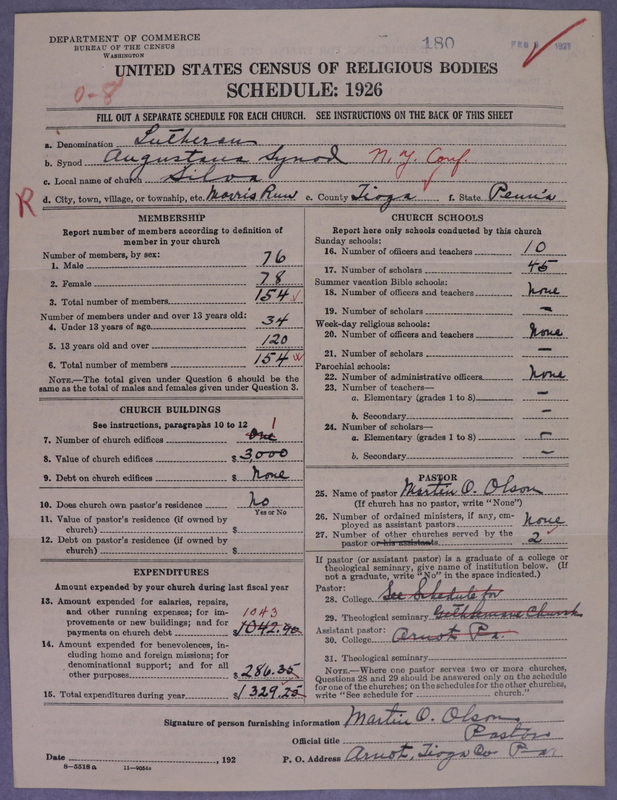 DEPARTMENT OF COMMERCE
BUREAU OF THE CENSUS
WASHINGTON
180
FEB 1927
UNITED STATES CENSUS OF RELIGIOUS BODIES
SCHEDULE: 1926
0-8
FILL OUT A SEPARATE SCHEDULE FOR EACH CHURCH. SEE INSTRUCTIONS ON THE BACK OF THIS SHEET
a. Denomination Lutheran
b. Synod Augustana Synod N.Y. Conf.
c. Local name of church Silva
R
d. City, town, village, or township, etc. Morris Run e. County Tioga f. State Penn'a
MEMBERSHIP
Report number of members according to definition of
member in your church
Number of members, by sex:
1. Male 76
2. Female 78
3. Total number of members 154
Number of members under and over 13 years old:
4. Under 13 years of age 34
5. 13 years old and over 120
6. Total number of members 154
NOTE.—The total given under Question 6 should be the
same as the total of males and females given under Question 3.
CHURCH BUILDINGS
See instructions, paragraphs 10 to 12
7. Number of church edifices One 1
8. Value of church edifices $ 3,000
9. Debt on church edifices $ None
10. Does church own pastor's residence No
Yes or No
11. Value of pastor's residence (if owned by
church) $
12. Debt on pastor's residence (if owned by
church) $
EXPENDITURES
Amount expended by your church during last fiscal year
13. Amount expended for salaries, repairs,
and other running expenses; for im-
provements or new buildings; and for
payments on church debt 1043 $ 1042.90
14. Amount expended for benevolences, in-
cluding home and foreign missions; for
denominational support; and for all
other purposes $ 286.35
15. Total expenditures during year $ 1329.25
CHURCH SCHOOLS
Report here only schools conducted by this church
Sunday schools:
16. Number of officers and teachers 10
17. Number of scholars 45
Summer vacation Bible schools:
18. Number of officers and teachers None
19. Number of scholars —
Week-day religious schools:
20. Number of officers and teachers None
21. Number of scholars —
Parochial schools:
22. Number of administrative officers None
23. Number of teachers—
a. Elementary (grades 1 to 8) —
b. Secondary —
24. Number of scholars—
a. Elementary (grades 1 to 8) —
b. Secondary —
PASTOR
25. Name of pastor Martin O. Olson
(If church has no pastor, write "None")
26. Number of ordained ministers, if any, em-
ployed as assistant pastors None
27. Number of other churches served by the
pastor or his assistants 2
If pastor (or assistant pastor) is a graduate of a college or
theological seminary, give name of institution below. (If
not a graduate, write "No" in the space indicated.)
Pastor:
28. College See Schedule for
29. Theological seminary Gethsemane Church
Assistant pastor:
30. College Arnot Pa.
31. Theological seminary
NOTE.—Where one pastor serves two or more churches,
Questions 28 and 29 should be answered only on the schedule
for one of the churches; on the schedules for the other churches,
write "See schedule for church."
Signature of person furnishing information Martin O. Olson
Official title Pastor
Date , 192 P. O. Address Arnot, Tioga Co Pa
8—5518 a 11—9354a